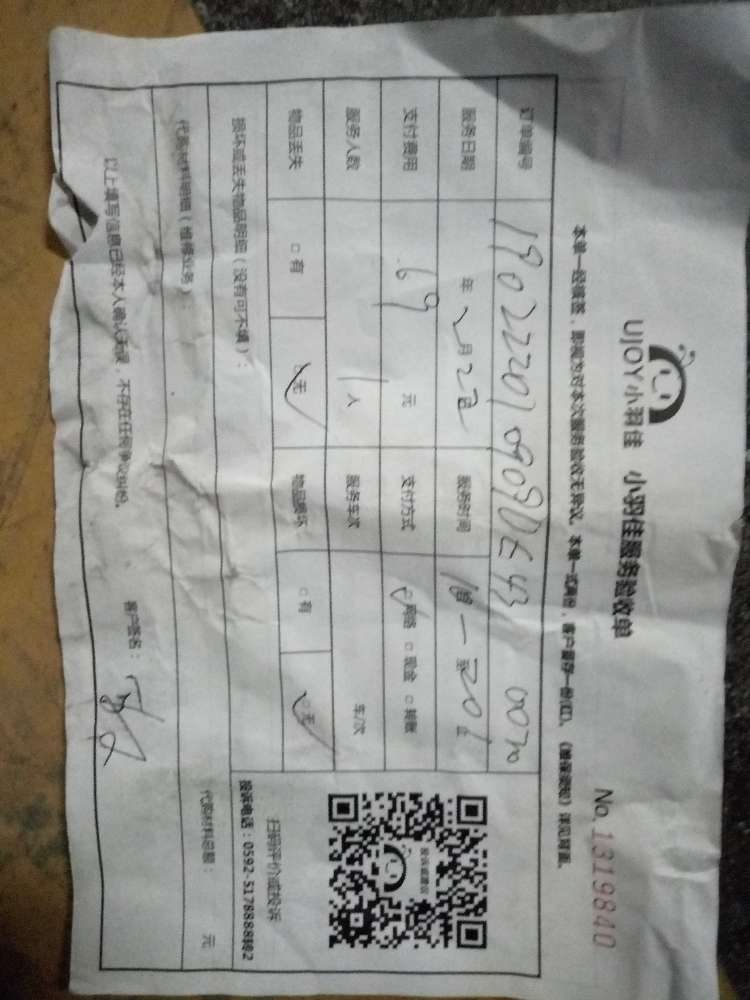 UJOY小羽佳 小羽佳服务验收单
No.1319840
本单一经填签，即视为对本次服务验收无异议。本单一式两份，客户留存一份(红)。《维保须知》详见背面。
订单编号
服务日期 年 2月22日 服务时间
支付费用 69 元 支付方式 ☑网络 □现金 □转账
服务人数 1人 服务车次 车/次
物品丢失 □有 ☑无 物品损坏 □有 ☑无
投诉或建议
扫码评价或投诉
投诉电话：0592-5178888转2
损坏或丢失物品明细（没有可不填）：
代购材料明细（维修业务）： 代购材料总额： 元
以上填写信息已经本人确认无误，不存在任何争议纠纷。 客户签名：